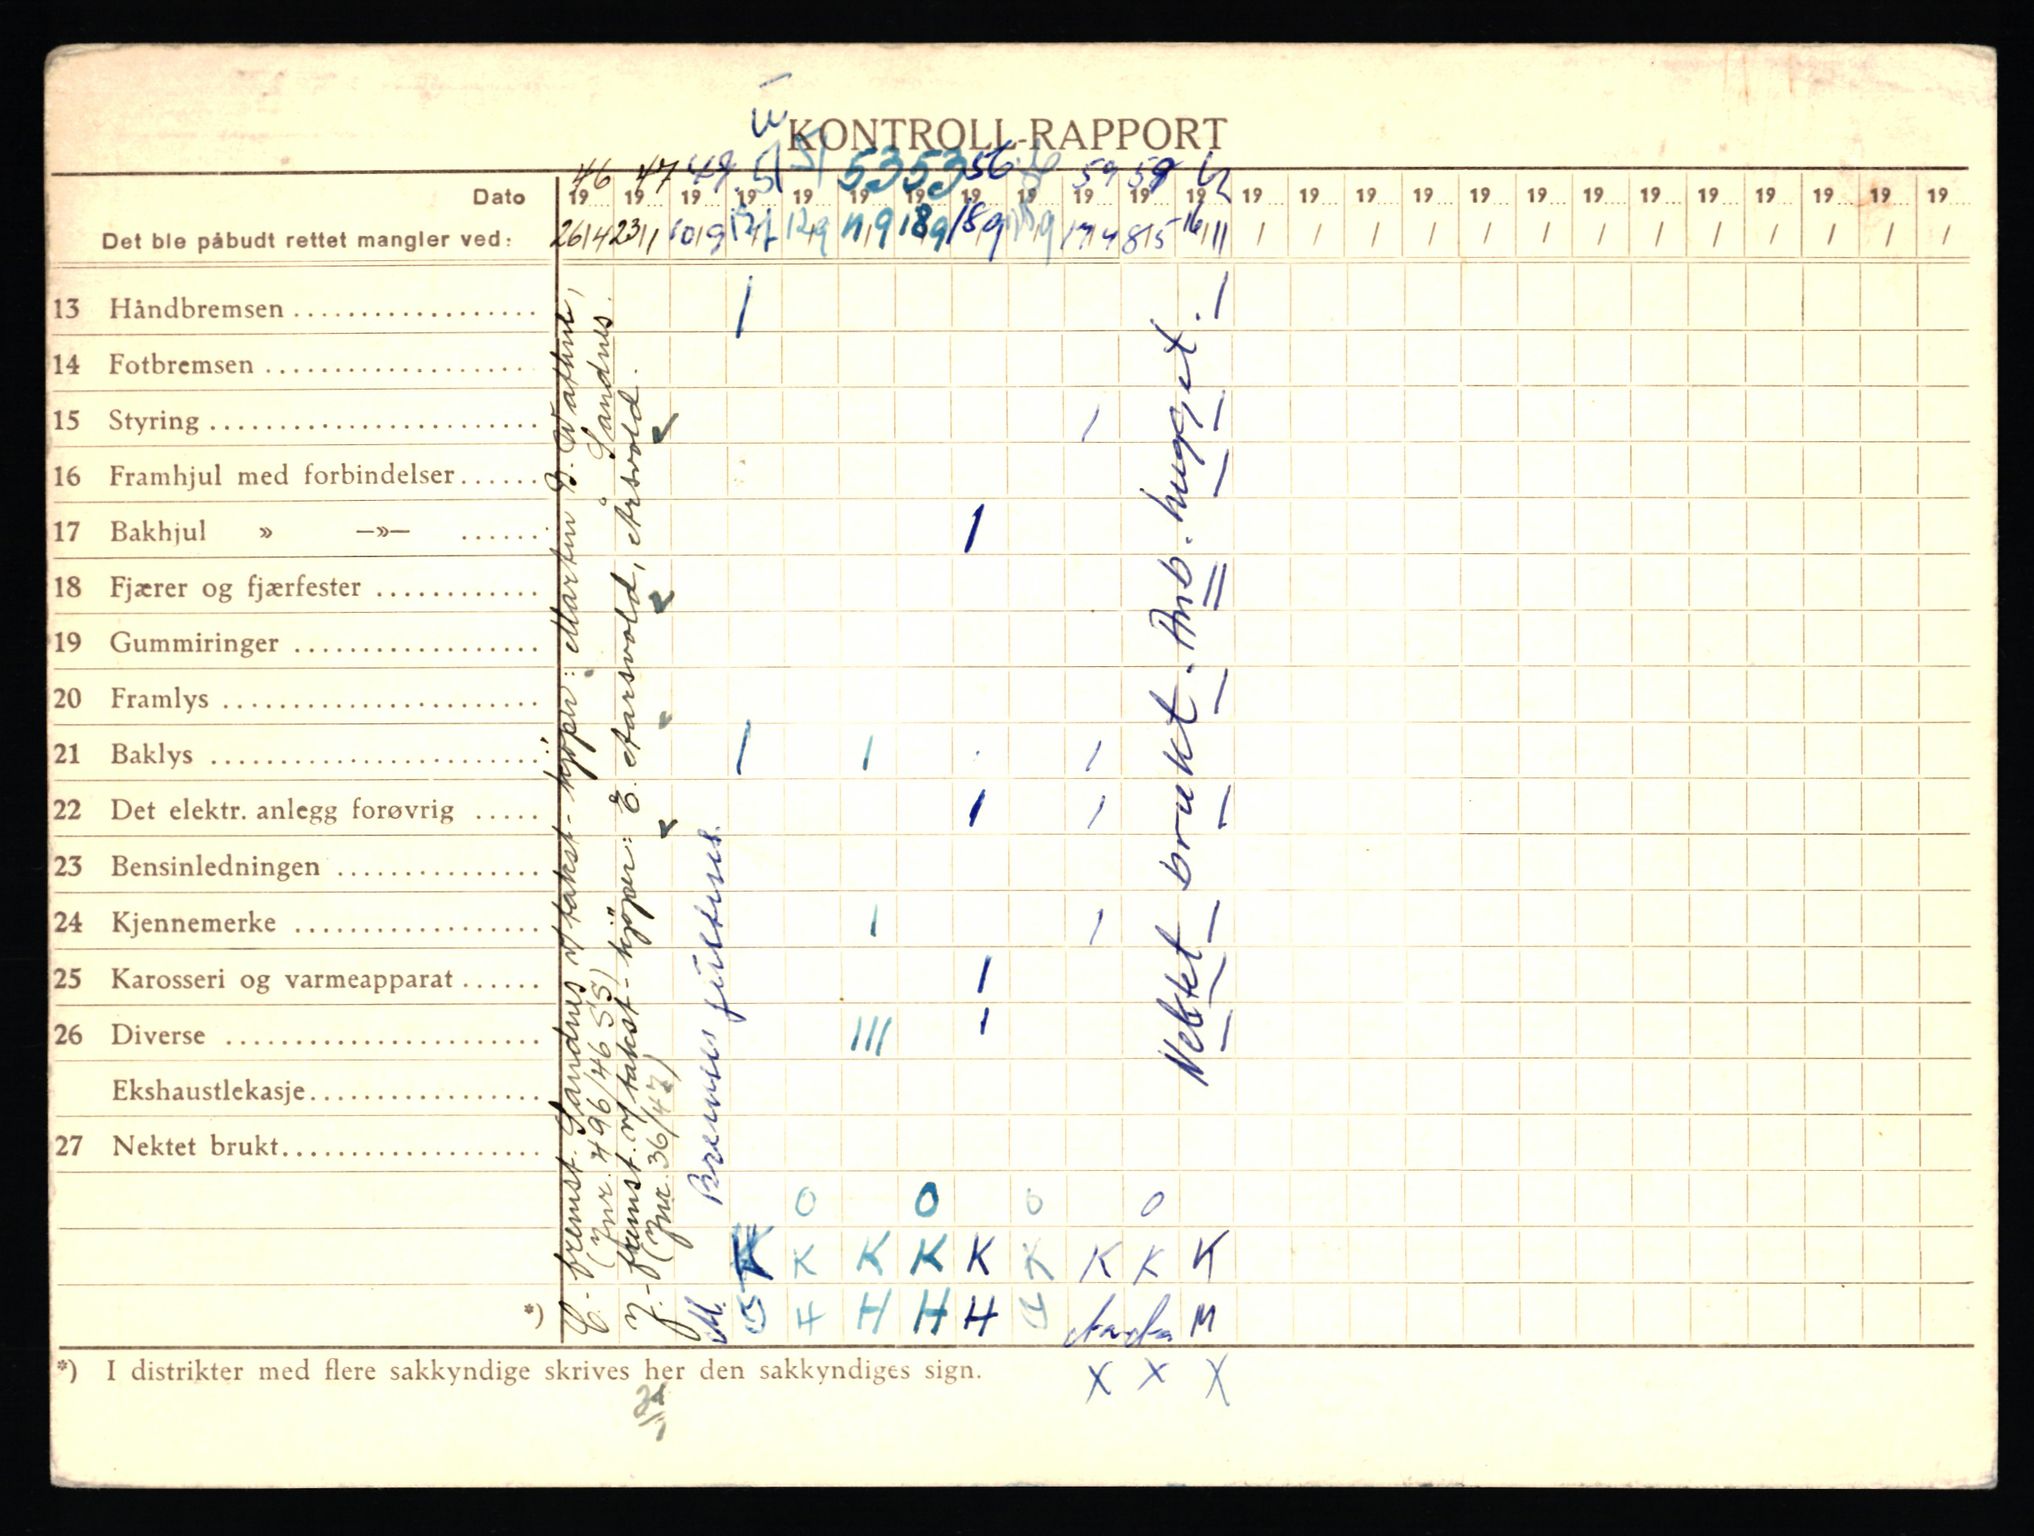 KONTROLL-RAPPORT
46 47 49 51 51 53 53 56 59 59
Dato 19 19 19 19 19 19 19 19 19 19 19 19 19 19 19 19 19 19 19 19 19 19 19 19 19
Det ble påbudt rettet mangler ved: 26/4 23/1 10/9 12/9 11/9 18/9 18/9 17/4 8/5 16/11 / / / / / / / / / / / / /
13 Håndbremsen
14 Fotbremsen
15 Styring
16 Framhjul med forbindelser
17 Bakhjul » —»—
18 Fjærer og fjærfester
19 Gummiringer
20 Framlys
21 Baklys
22 Det elektr. anlegg forøvrig
23 Bensinledningen
24 Kjennemerke
25 Karosseri og varmeapparat
26 Diverse
Ekshaustlekasje
27 Nektet brukt
fremst. Sandnes v/takst- kjøper: Martin B. Wathne, Sandnes.
(Jnr. 496/46 SS)
fremst. v/takst- kjøper: E. Aarsvold, Årsvold.
(Jnr. 36/47)
Bremser justeres.
Nektet brukt. Anb. hugget.
O O O O
K K K K K K K K K
*) M. H H H H M
*) I distrikter med flere sakkyndige skrives her den sakkyndiges sign.
X X X